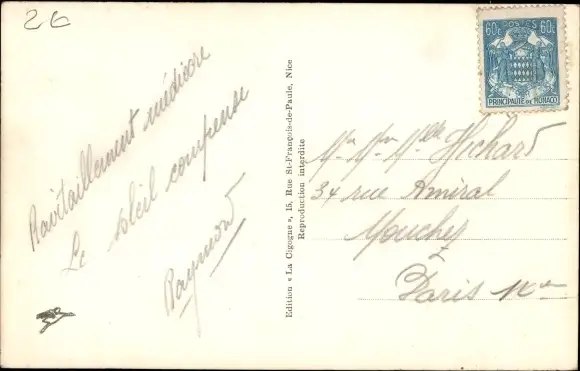 2€
Ravitaillement médiocre
Le soleil compense
Raymond
Edition « La Cigogne », 15, Rue St-François-de-Paule, Nice
Reproduction interdite
60c POSTES 60c
PRINCIPAUTÉ DE MONACO
Mr Mme Mlle Hochard
34 rue Amiral
Mouchez
Paris